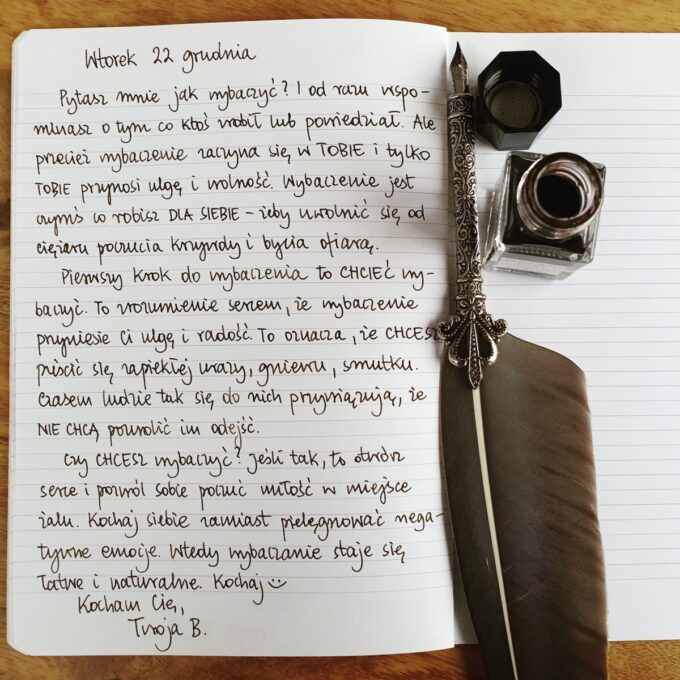 Wtorek 22 grudnia
Pytasz mnie jak wybaczyć? I od razu wspo-
minasz o tym co ktoś zrobił lub powiedział. Ale
przecież wybaczenie zaczyna się w TOBIE i tylko
TOBIE przynosi ulgę i wolność. Wybaczenie jest
czymś co robisz DLA SIEBIE – żeby uwolnić się od
ciężaru poczucia krzywdy i bycia ofiarą.
Pierwszy krok do wybaczenia to CHCIEĆ wy-
baczyć. To zrozumienie sercem, że wybaczenie
przyniesie Ci ulgę i radość. To oznacza, że CHCESZ
puścić się zapiekłej urazy, gniewu, smutku.
Czasem ludzie tak się do nich przywiązują, że
NIE CHCĄ pozwolić im odejść.
Czy CHCESZ wybaczyć? Jeśli tak, to otwórz
serce i pozwól sobie poczuć miłość w miejsce
żalu. Kochaj siebie zamiast pielęgnować nega-
tywne emocje. Wtedy wybaczanie staje się
łatwe i naturalne. Kochaj☺
Kocham Cię,
Twoja B.